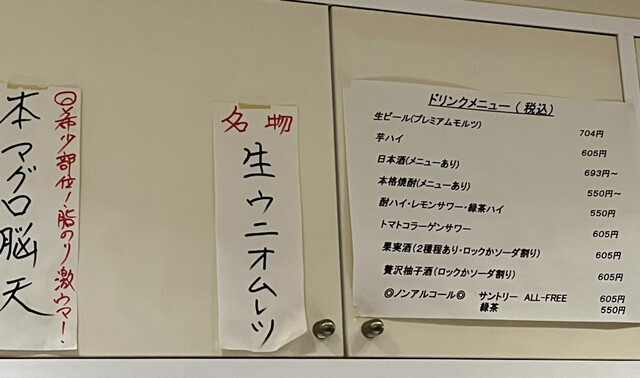 ◎希少部位！脂のり激ウマ！
本マグロ脳天
名物
生ウニオムレツ
ドリンクメニュー（税込）
生ビール(プレミアムモルツ) 704円
芋ハイ 605円
日本酒(メニューあり) 693円～
本格焼酎(メニューあり) 550円～
酎ハイ・レモンサワー・緑茶ハイ 550円
トマトコラーゲンサワー 605円
果実酒(２種程あり・ロックかソーダ割り) 605円
贅沢柚子酒(ロックかソーダ割り) 605円
◎ノンアルコール◎ サントリー ALL-FREE 605円
緑茶 550円